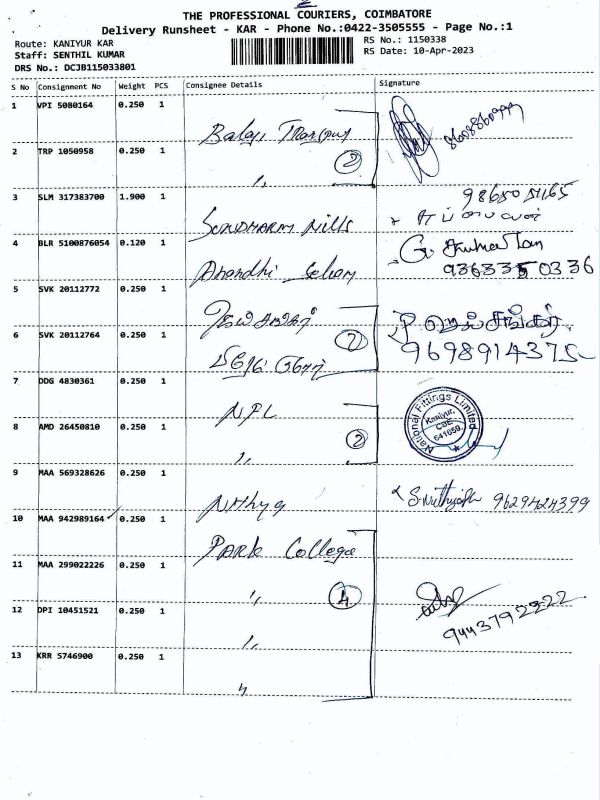 THE PROFESSIONAL COURIERS, COIMBATORE
Delivery Runsheet - KAR - Phone No.:0422-3505555 - Page No.:1
Route: KANIYUR KAR
RS No.: 1150338
Staff: SENTHIL KUMAR
RS Date: 10-Apr-2023
DRS No.: DCJB115033801
S No Consignment No Weight PCS Consignee Details Signature
1 VPI 5080164 0.250 1
8608860777
2 TRP 1050958 0.250 1 Balaji
② 
〃
3 SLM 317383700 1.900 1
SUNDHARM Mills
4 BLR 5100876054 0.120 1 G.
Anandhi Selvam 9363350336
5 SVK 20112772 0.250 1
6 SVK 20112764 0.250 1
② 9698914375
7 DDG 4830361 0.250 1
NFL National Fittings Limited
8 AMD 26450810 0.250 1 Kaniyur, CBE 641059.
② 
〃
9 MAA 569328626 0.250 1
Nithya 9629424399
10 MAA 942989164 ✓ 0.250 1
Park College
11 MAA 299022226 0.250 1
〃 ④
12 DPI 10451521 0.250 1 9443792222
〃
13 KRR 5746900 0.250 1
〃